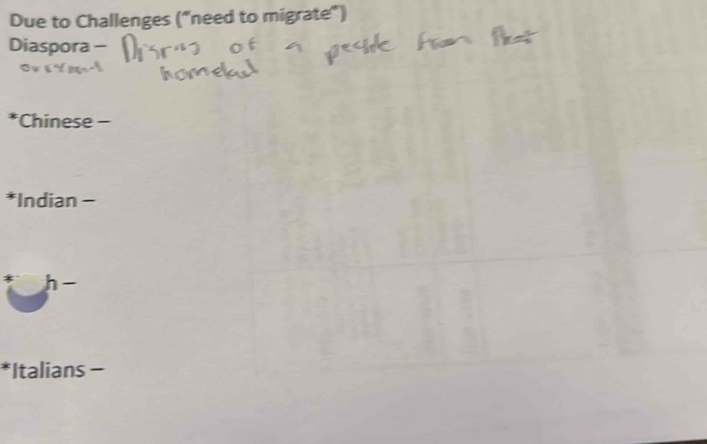 Due to Challenges ("need to migrate")
Diaspora – of a people from their
homeland
*Chinese –
*Indian –
* h –
*Italians –